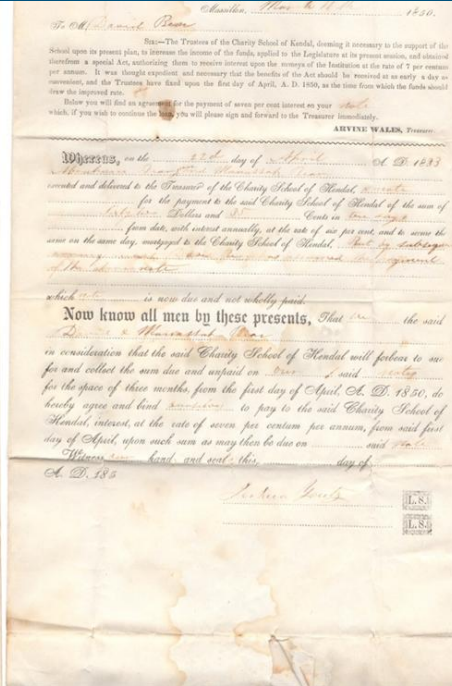 Massillon, 1850.
To Mr David Baer
SIR:—The Trustees of the Charity School of Kendal, deeming it necessary to the support of the
School upon its present plan, to increase the income of the funds, applied to the Legislature at its present session, and obtained
therefrom a special Act, authorizing them to receive interest upon the moneys of the Institution at the rate of 7 per cent
per annum. It was thought expedient and necessary that the benefits of the Act should be received at as early a day as
convenient, and the Trustees have fixed upon the first day of April, A. D. 1850, as the time from which the funds should
draw the improved rate.
Below you will find an agreement for the payment of seven per cent interest on your note
which, if you wish to continue the loan, you will please sign and forward to the Treasurer immediately.
ARVINE WALES, Treasurer.
Whereas, on the 22d day of April A. D. 1833
executed and delivered to the Treasurer of the Charity School of Kendal,
for the payment to the said Charity School of Kendal of the sum of
Dollars and Cents in days
from date, with interest annually, at the rate of six per cent, and to secure the
same on the same day, mortgaged to the Charity School of Kendal,
of the
which note is now due and not wholly paid.
Now know all men by these presents, That we the said
in consideration that the said Charity School of Kendal will forbear to sue
for and collect the sum due and unpaid on our said note
for the space of three months, from the first day of April, A. D. 1850, do
hereby agree and bind to pay to the said Charity School of
Kendal, interest, at the rate of seven per centum per annum, from said first
day of April, upon such sum as may then be due on said note
Witness our hand and seal this, day of
A. D. 185
L. S.
L. S.